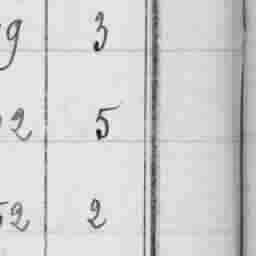 9 3
2 5
52 2